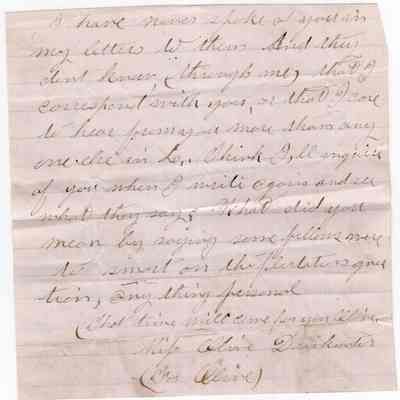 I have never spoke of you in
my letters to them And they
dont know, (through me) that I
correspont with you, or that I care
to hear from you more than any
one else in Co,. I think I,ll inquire
of you when I write again and see
what they say; What did you
mean by saying some fellows were
to smart on the
tion, any thing personal
time will come for you
Miss Olive
(Or Olive)